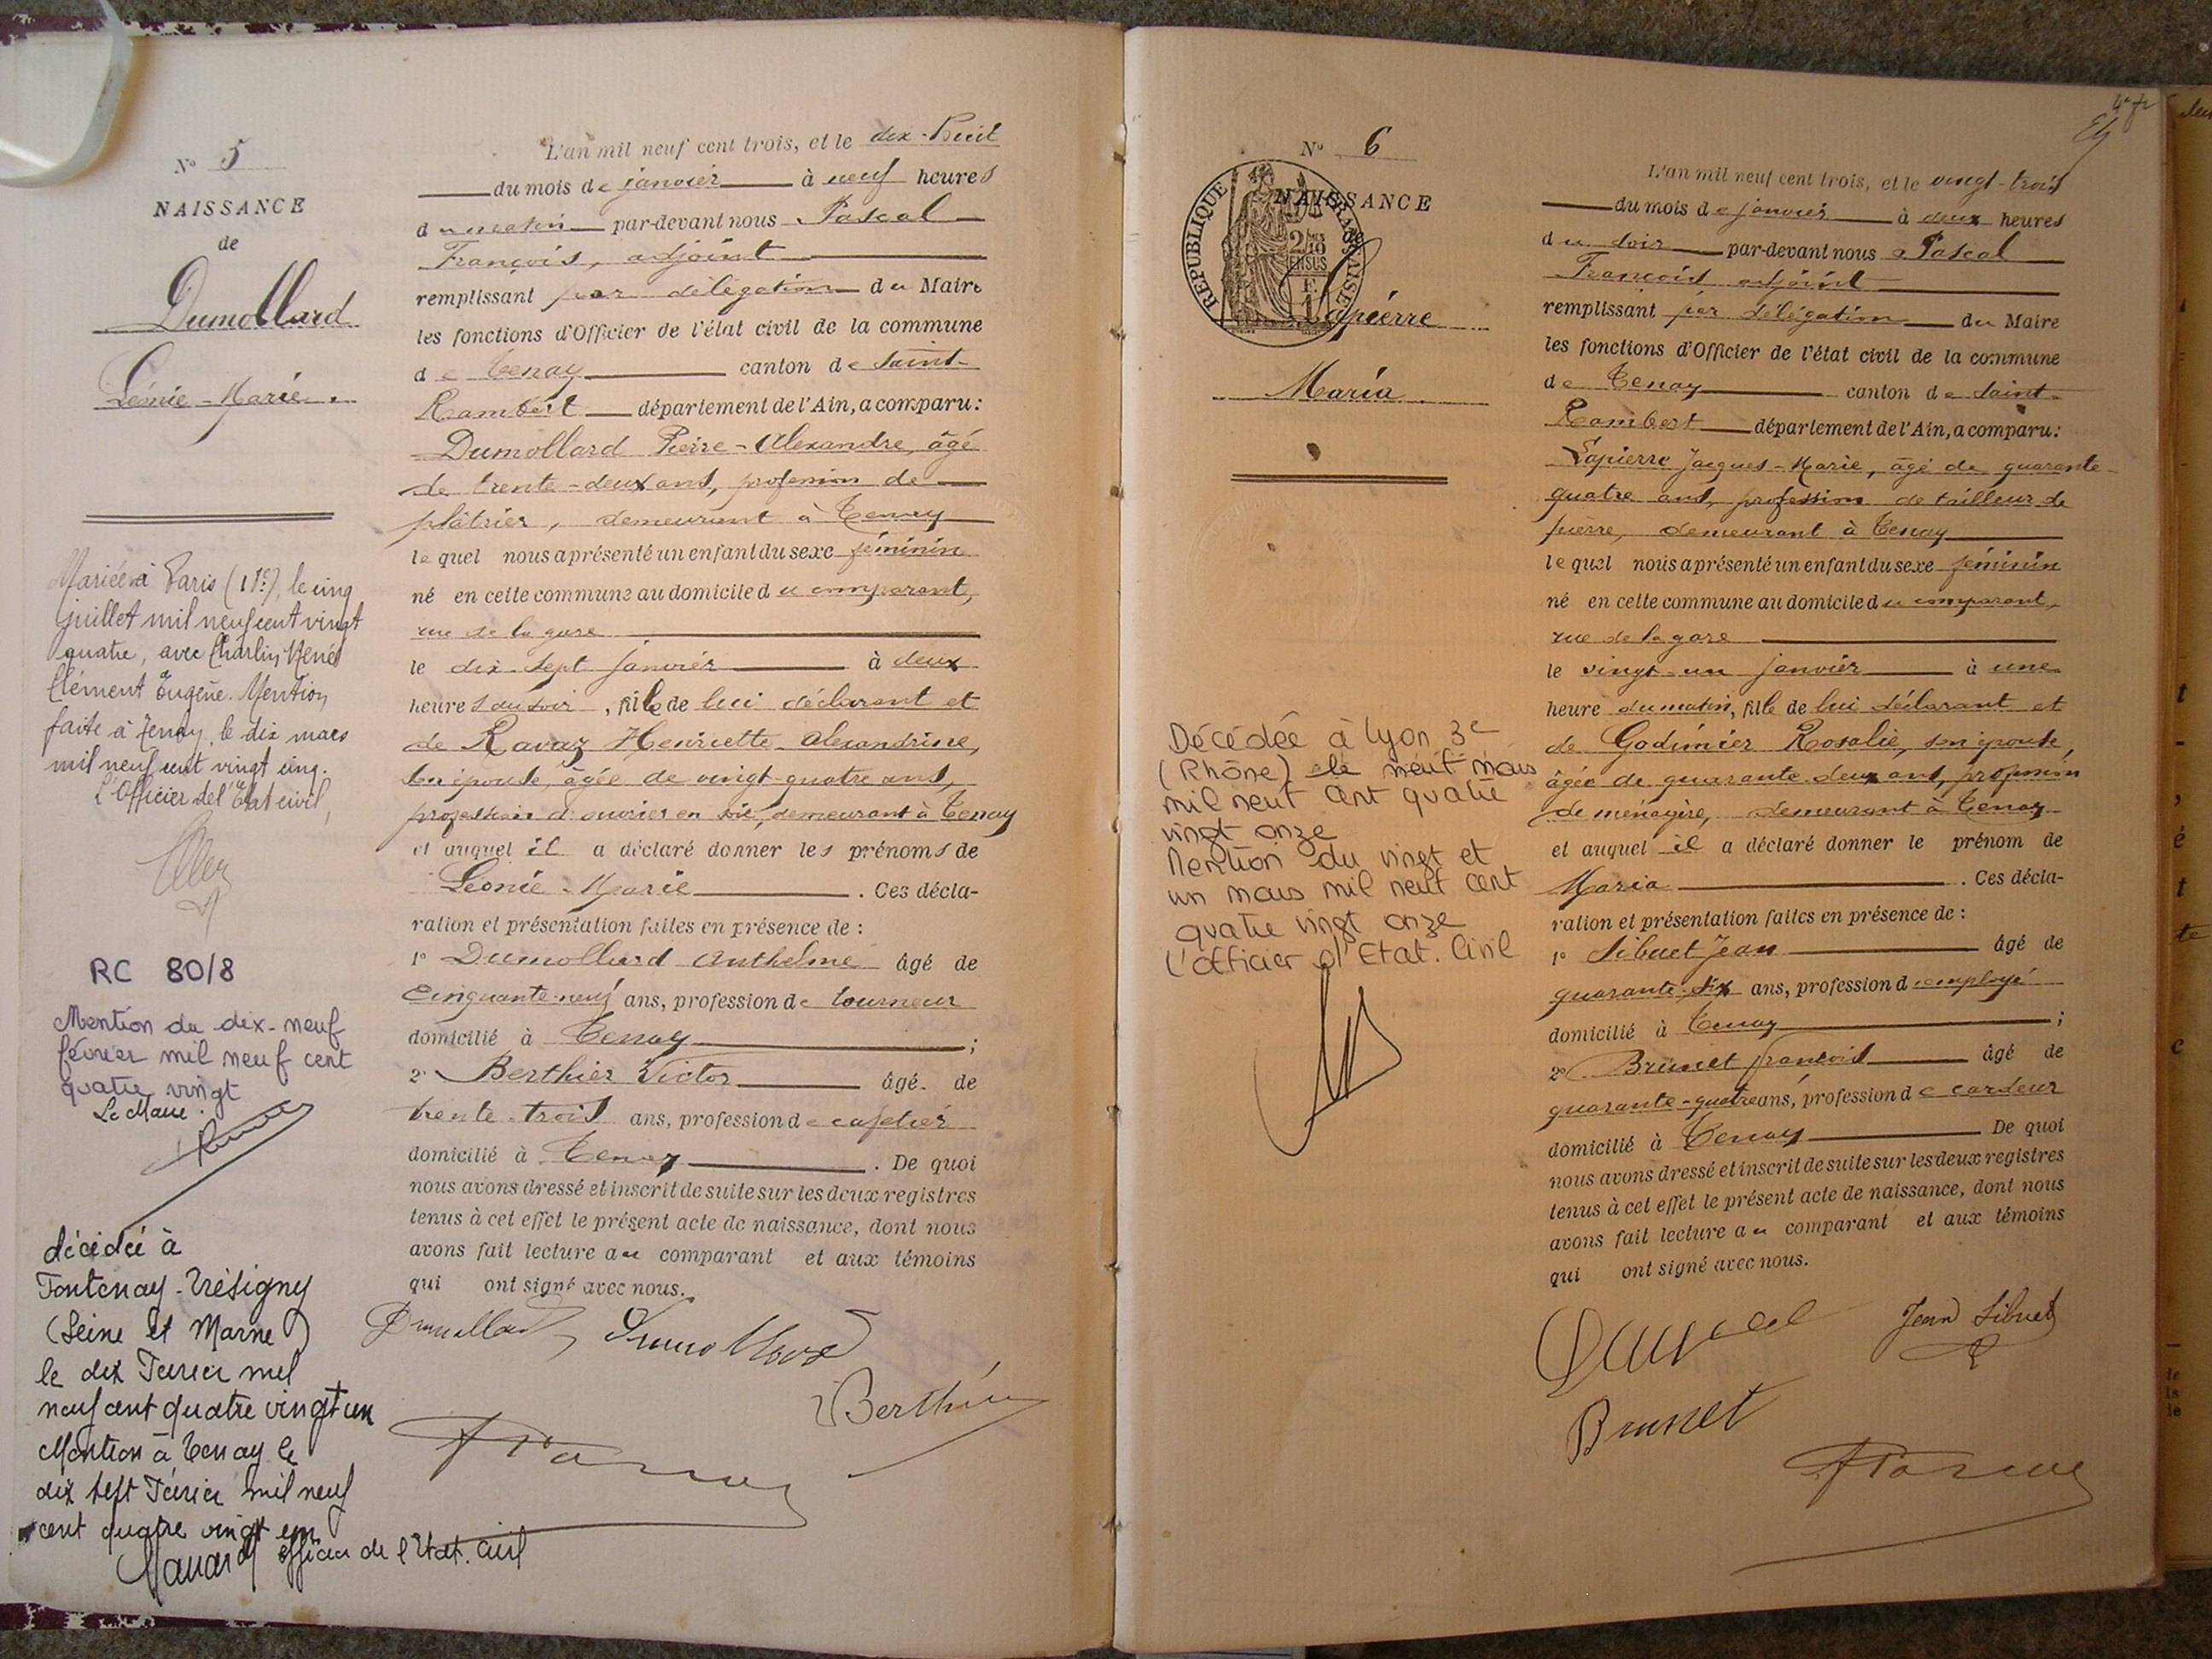 N° 5
NAISSANCE
de
Dumollard
Léonie-Marie.
Mariée à Paris (11e), le cinq
juillet mil neuf cent vingt
quatre, avec Charlin René
Clément Eugène. Mention
faite à Tenay, le dix mars
mil neuf cent vingt cinq.
L'Officier de l'Etat civil,
RC 80/8
Mention du dix-neuf
février mil neuf cent
quatre vingt
Le Maire.
décédée à
Fontenay-Trésigny
(Seine et Marne)
le dix Février mil
neuf cent quatre vingt un
Mention à Tenay le
dix sept Février mil neuf
cent quatre vingt un
officier de l'Etat. Civil
L'an mil neuf cent trois, et le dix-huit
du mois de janvier à neuf heures
du matin par-devant nous Pascal
François, adjoint
remplissant par délégation du Maire
les fonctions d'Officier de l'état civil de la commune
de Tenay canton de Saint-
Rambert département de l'Ain, a comparu:
Dumollard Pierre-Alexandre, âgé
de trente-deux ans, profession de
plâtrier, demeurant à Tenay
lequel nous a présenté un enfant du sexe féminin
né en cette commune au domicile du comparant,
rue de la gare
le dix-sept janvier à deux
heures du soir, fille de lui déclarant et
de Ravaz Henriette Alexandrine,
son épouse, âgée de vingt-quatre ans,
profession d'ouvrier en soie, demeurant à Tenay
et auquel il a déclaré donner les prénoms de
Léonie-Marie. Ces décla-
ration et présentation faites en présence de :
1° Dumollard Anthelme âgé de
cinquante-neuf ans, profession de tourneur
domicilié à Tenay ;
2° Berthier Victor âgé de
trente-trois ans, profession de cafetier
domicilié à Tenay. De quoi
nous avons dressé et inscrit de suite sur les deux registres
tenus à cet effet le présent acte de naissance, dont nous
avons fait lecture au comparant et aux témoins
qui ont signé avec nous.
Dumollard Dumollard
Berthier
N° 6
NAISSANCE
de
REPUBLIQUE FRANÇAISE
Lapierre
Maria
Décédée à Lyon 3e
(Rhône) le neuf mars
mil neuf cent quatre
vingt onze
Mention du vingt et
un mars mil neuf cent
quatre vingt onze
L'officier d'Etat. Civil
L'an mil neuf cent trois, et le vingt-trois
du mois de janvier à deux heures
du soir par-devant nous Pascal
François adjoint
remplissant par délégation du Maire
les fonctions d'Officier de l'état civil de la commune
de Tenay canton de Saint-
Rambert département de l'Ain, a comparu:
Lapierre Jacques-Marie, âgé de quarante-
quatre ans, profession de tailleur de
pierre, demeurant à Tenay
lequel nous a présenté un enfant du sexe féminin
né en cette commune au domicile du comparant,
rue de la gare
le vingt-un janvier à une
heure du matin, fille de lui déclarant et
de Godimier Rosalie, son épouse,
âgée de quarante-deux ans, profession
de ménagère, demeurant à Tenay
et auquel il a déclaré donner le prénom de
Maria. Ces décla-
ration et présentation faites en présence de :
1° Sibuet Jean âgé de
quarante-six ans, profession d'employé
domicilié à Tenay ;
2° Brunet François âgé de
quarante-quatre ans, profession de cardeur
domicilié à Tenay De quoi
nous avons dressé et inscrit de suite sur les deux registres
tenus à cet effet le présent acte de naissance, dont nous
avons fait lecture au comparant et aux témoins
qui ont signé avec nous.
Jean Sibuet
Brunet